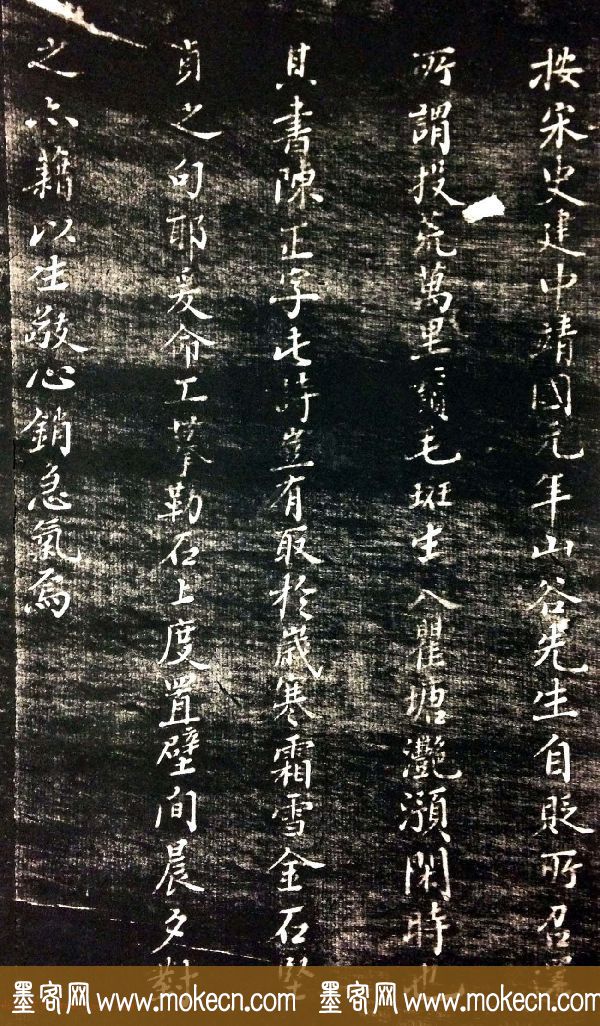 按宋史建中靖國元年山谷先生自貶所召還
所謂投荒萬里鬢毛斑生入瞿塘灩澦關時也
其書陳正字此詩豈有取於歲寒霜雪金石堅
貞之句耶爰命工摹勒石上度置壁間晨夕對
之亦藉以生敬心銷怠氣焉
墨客网 www.mokecn.com 墨客网 www.mokecn.com